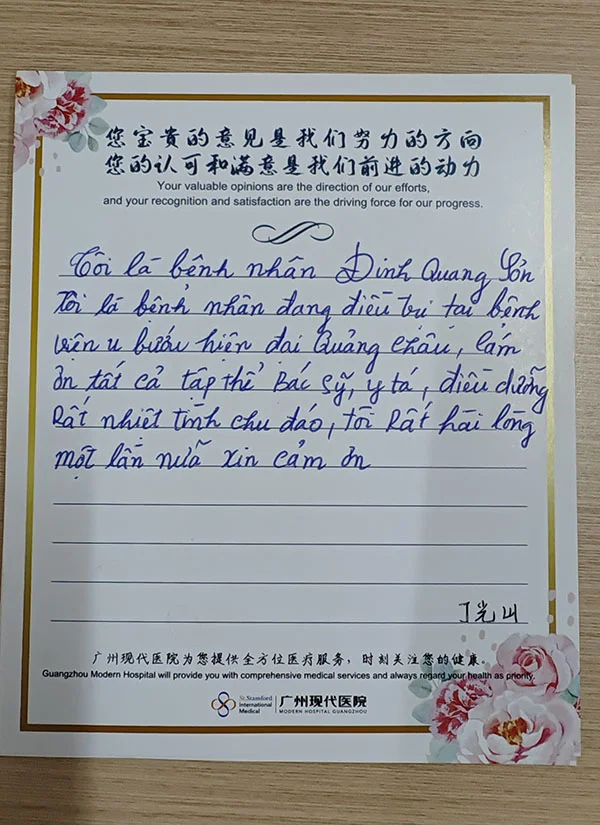 您宝贵的意见是我们努力的方向
您的认可和满意是我们前进的动力
Your valuable opinions are the direction of our efforts,
and your recognition and satisfaction are the driving force for our progress.
Tôi là bệnh nhân Đinh Quang Sơn
Tôi là bệnh nhân đang điều trị tại bệnh
viện u bướu hiện đại Quảng Châu, Cảm
ơn tất cả tập thể Bác sỹ, y tá, điều dưỡng
Rất nhiệt tình chu đáo, tôi Rất hài lòng
một lần nữa xin cảm ơn
丁光山
广州现代医院为您提供全方位医疗服务，时刻关注您的健康。
Guangzhou Modern Hospital will provide you with comprehensive medical services and always regard your health as priority.
St.Stamford International Medical 广州现代医院
MODERN HOSPITAL GUANGZHOU